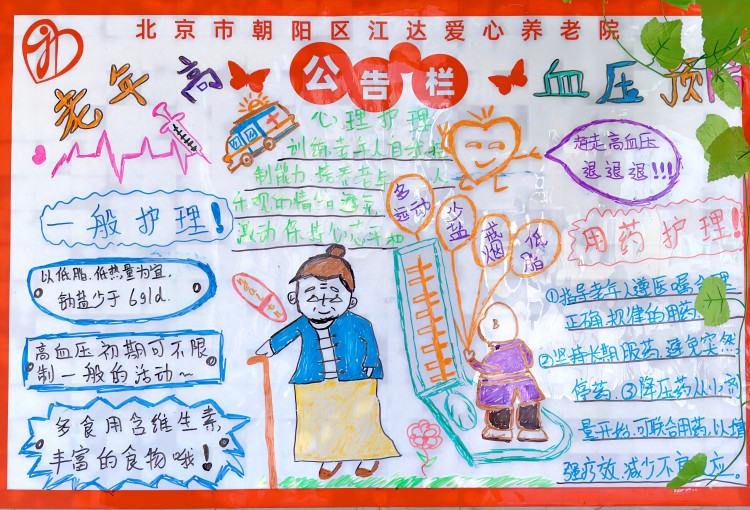 北京市朝阳区江达爱心养老院
公告栏
老年高
血压预防
心理护理
训练老年人自
制能力 培养老年 人
乐观的情绪 避免
激动 保持心态平和
赶走高血压
退退退!!!
多运动
少盐
戒烟
低脂
一般护理!
以低脂.低热量为宜,
钠盐少于6g/d.
高血压初期可不限
制一般的活动~
多食用含维生素
丰富的食物哦!
用药护理!
①指导老年人遵医嘱合理
正确规律的用药
②坚持长期服药,避免突然
停药.③降压药从小剂
量开始,可联合用药,以增
强疗效,减少不良 应。